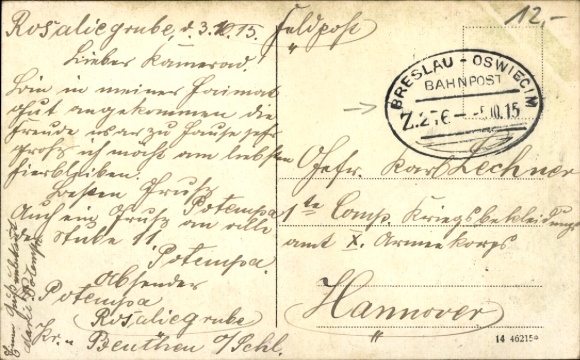 Rosaliegrube, d. 3.10.15.
Lieber Kamerad.
Bin in meiner Heimat
gut angekommen die
Freude war zu Hause sehr
groß ich möcht am liebsten
hierbleiben.
Besten Gruß
Potempa
Auch ein Gruß an alle
der Stube 11.
Potempa.
Absender
Potempa
Rosaliegrube
Kr. Beuthen O/Schl.
Einen Gruß
Potempa
Feldpost
12,-
BRESLAU - OSWIECIM
BAHNPOST
Z.276 - -5.10.15
Gefr. Karl Lechner
1te Comp. Kriegsbekleidungs
amt X. Armeekorps
Hannover
14 46215